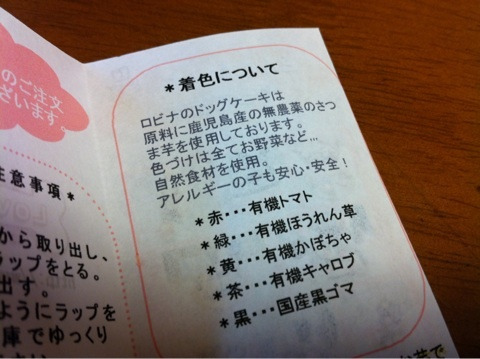 のご注文
ざいます。
注意事項*
から取り出し、
ラップをとる。
出す。
ようにラップを
庫でゆっくり
*着色について
ロビナのドッグケーキは
原料に鹿児島産の無農薬のさつ
ま芋を使用しております。
色づけは全てお野菜など…
自然食材を使用。
アレルギーの子も安心・安全！
*赤・・・有機トマト
*緑・・・有機ほうれん草
*黄・・・有機かぼちゃ
*茶・・・有機キャロブ
*黒・・・国産黒ゴマ